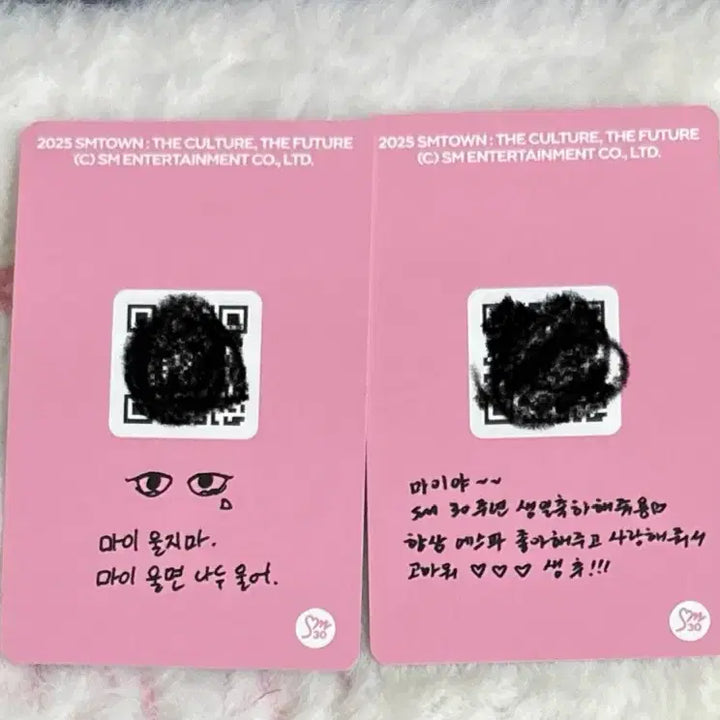 2025 SMTOWN : THE CULTURE, THE FUTURE
(C) SM ENTERTAINMENT CO., LTD.
마이 울지마.
마이 울면 나두 울어.
SM
30
2025 SMTOWN : THE CULTURE, THE FUTURE
(C) SM ENTERTAINMENT CO., LTD.
마이야~~
SM 30주년 생일축하해쥬용♡
항상 에스파 좋아해주고 사랑해줘서
고마워 ♡♡♡ 생축!!!
SM
30